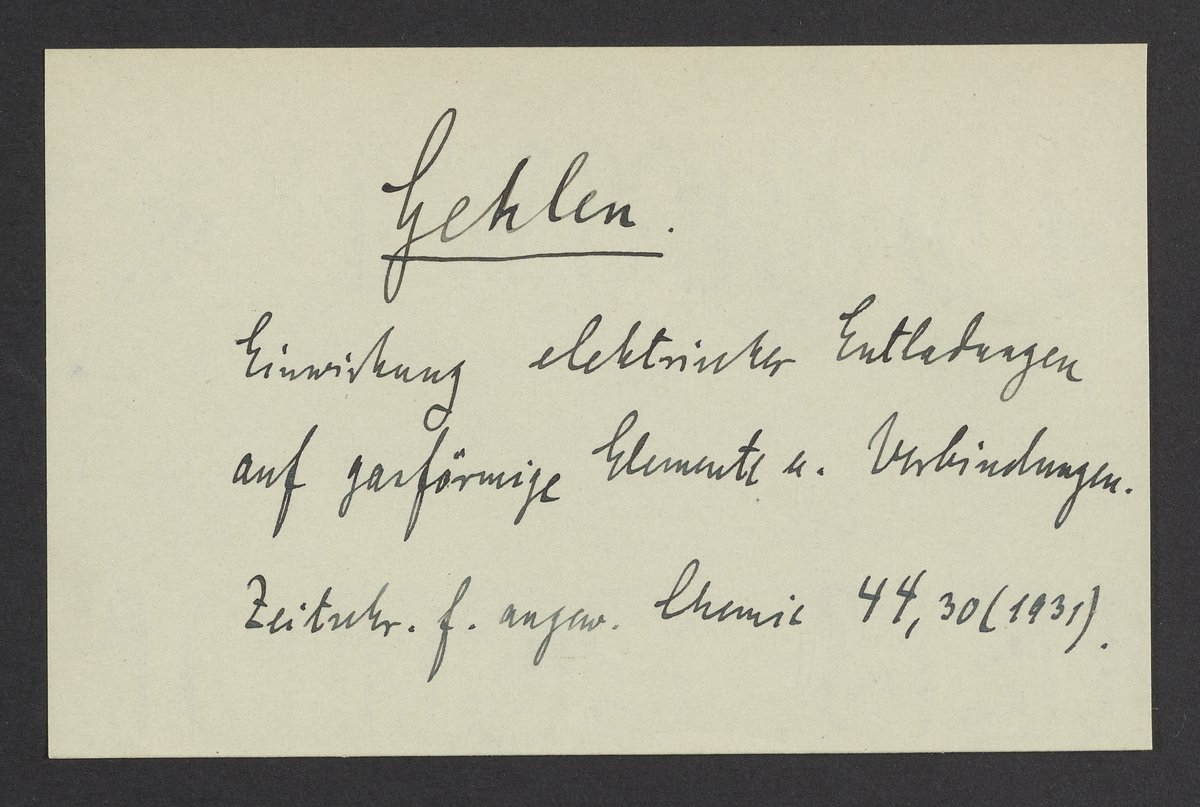 Gehlen.
Einwirkung elektrischer Entladungen
auf gasförmige Elemente u. Verbindungen.
Zeitschr. f. angew. Chemie 44, 30 (1931).